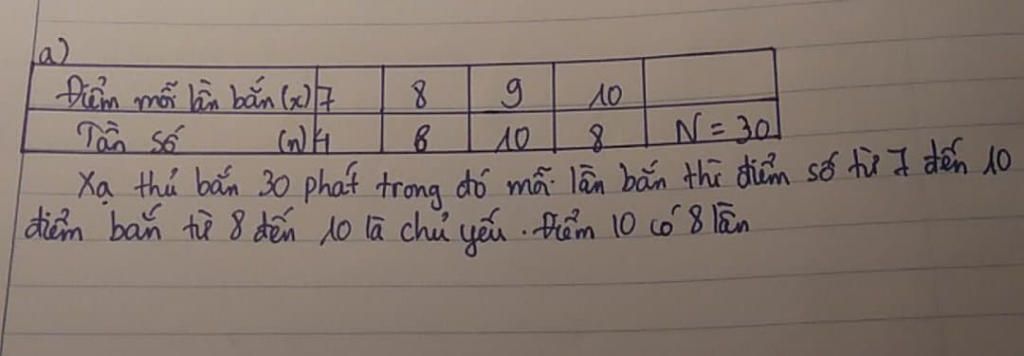 a)
Điểm mỗi lần bắn (x) 7 8 9 10
Tần số (n) 4 8 10 8 N = 30
Xạ thủ bắn 30 phát trong đó mỗi lần bắn thì điểm số từ 7 đến 10
điểm bắn từ 8 đến 10 là chủ yếu. Điểm 10 có 8 lần